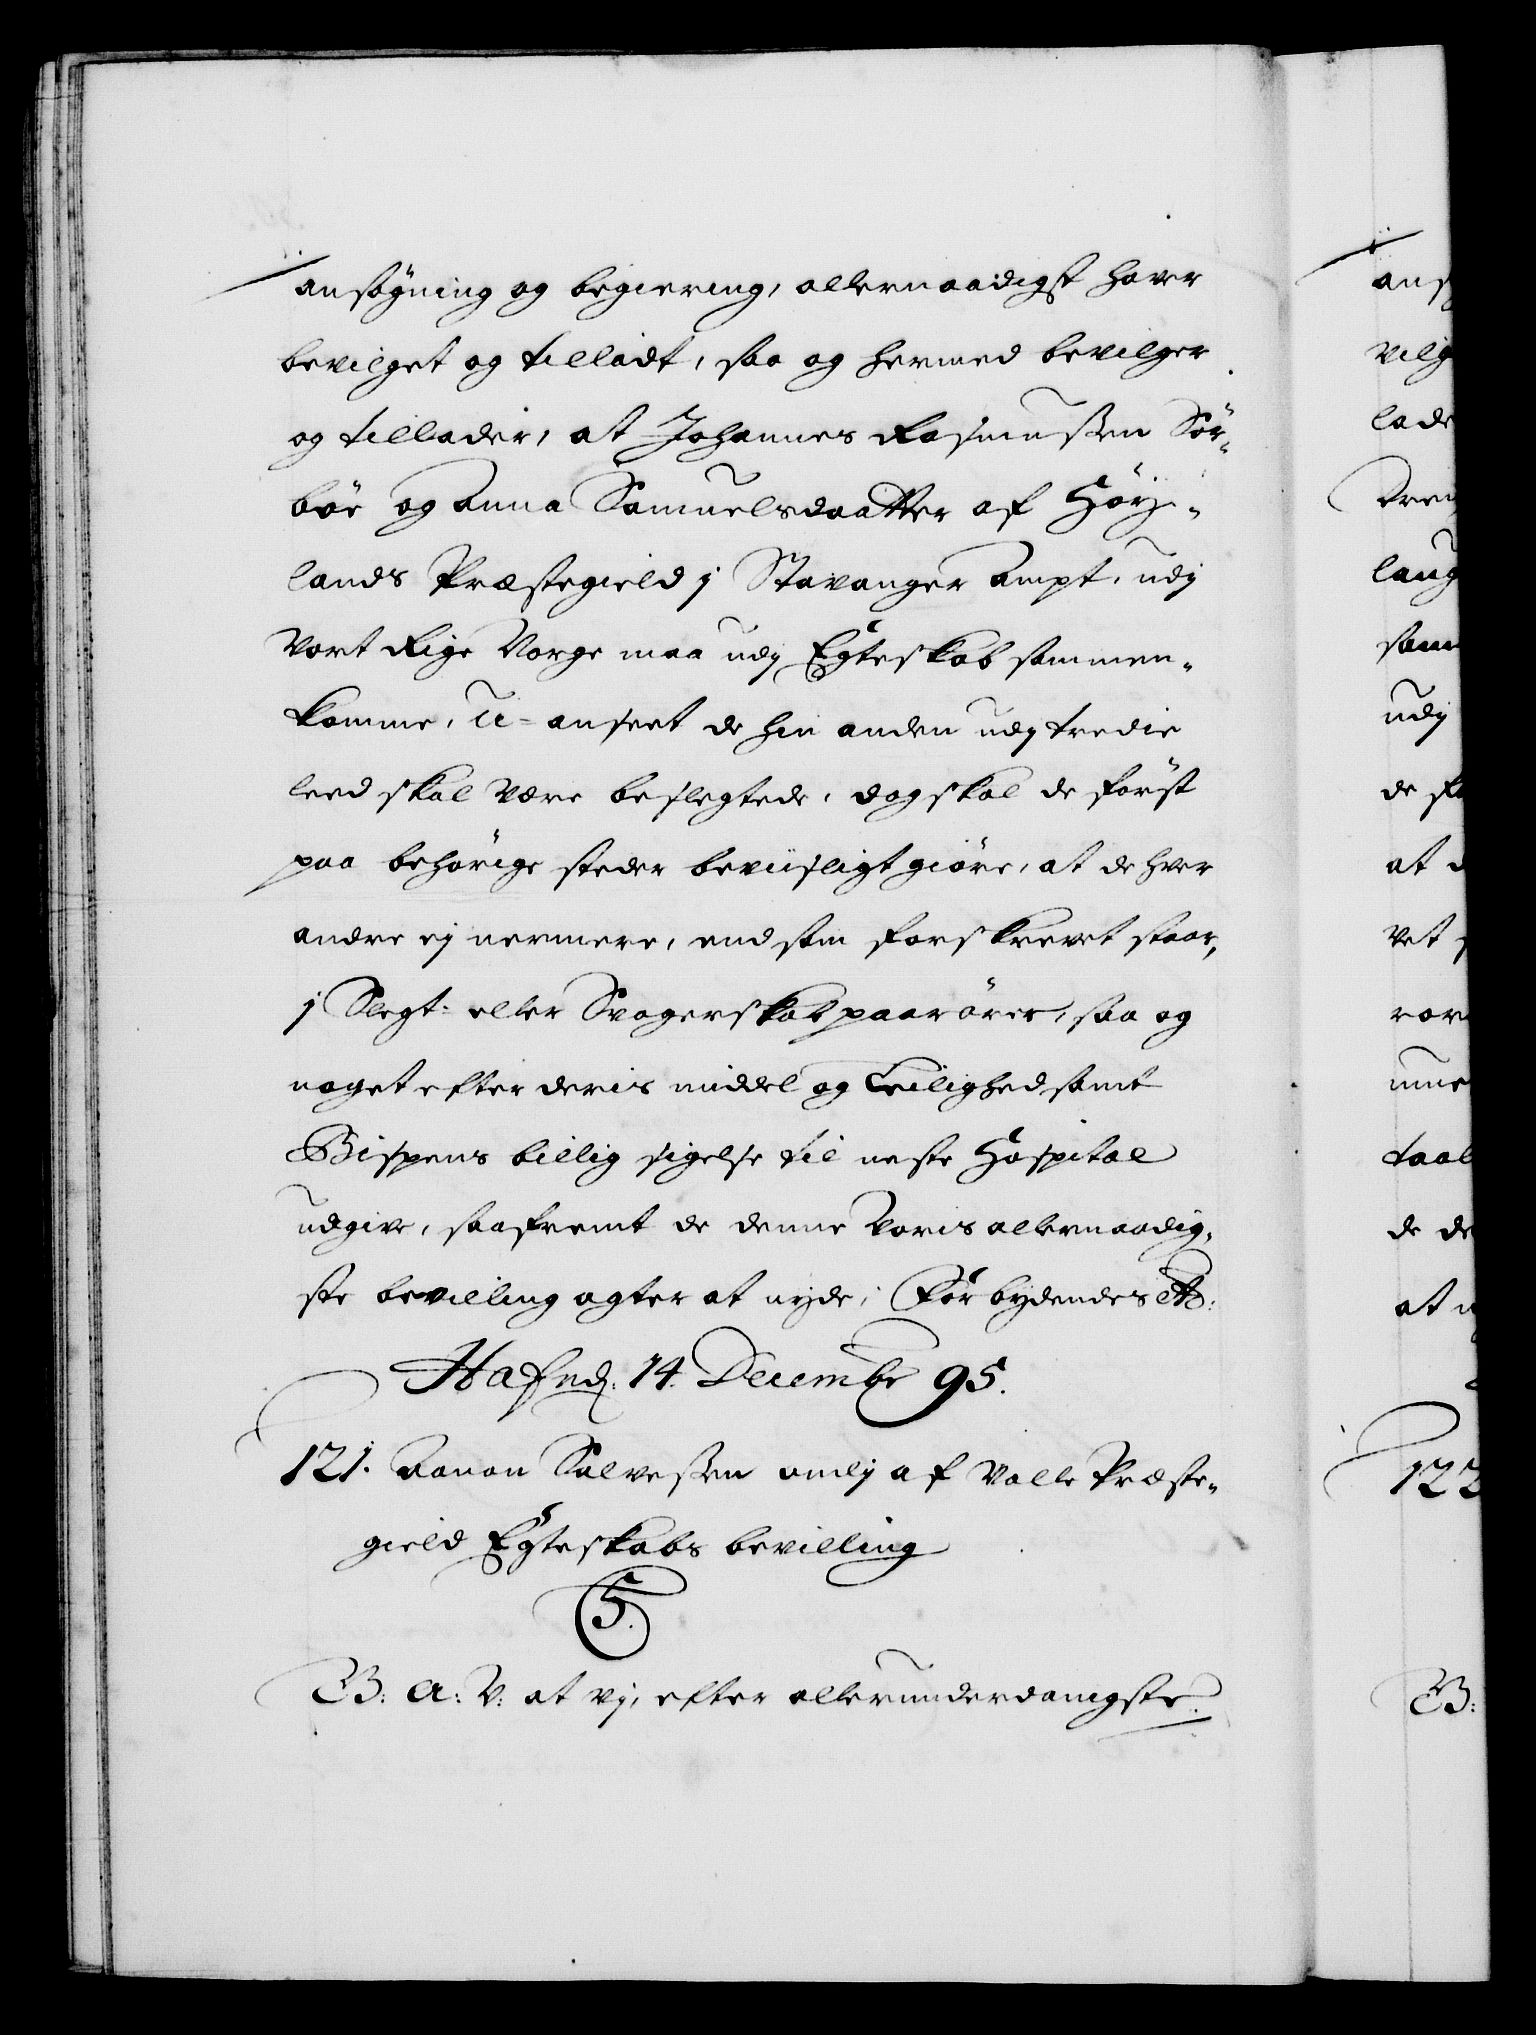 ansøgning og begiering, allernaadigst haver
bevilget og tilladt, saa og hermed bevilger
og tillader, at Johannes Rasmussen Sör-
böe og Anna Samuelsdaatter af Höye-
lands Præstegield j Stavanger Ampt, udj
Vort Rige Norge maa udj Egteskab sammen-
komme, U-anseet de hin anden udj tredie
leed skal være beslegtede, dog skal de först
paa behörige steder beviisligt giöre, at de hver
andre ej nermere, end som forskrevet staar,
j Slegt- eller Svogerskab paarörer, saa og
noget efter deris middel og Leilighed samt
Bispens billig sigelse til neste Hospital
udgive, saafremt de denne Voris allernaadig-
ste bevilling agter at nyde, Forbydendes etc:
Hafn. 14. Decembr 95.
121. Aanon Salvessen Omlj af Valle Præste-
gield Egteskabs bevilling
5.
G. A: V: at vj, efter allerunderdanigste
ans
vilg
lade
laug
sam
udj
de
at
vet
taal
de de
at
122
G: